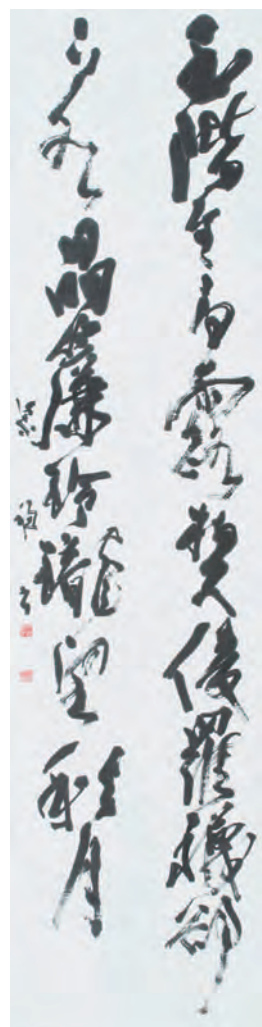 玉階生白露夜久侵羅襪却
下水晶簾玲瓏望秋月